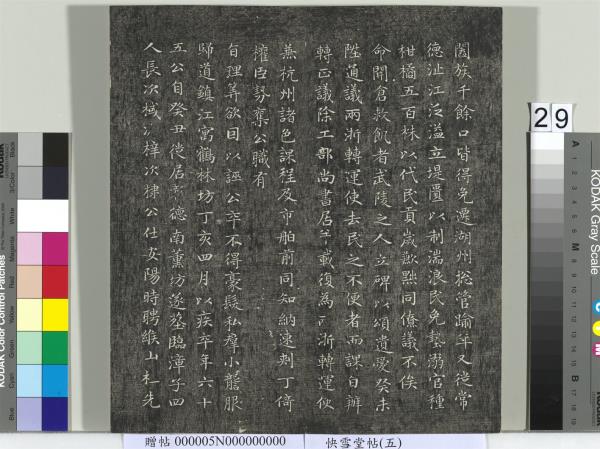 闔族千餘口皆得免遷湖州揔管踰年又從常
德沚江泛溢立堤置以制湍浪民免墊溺官種
柑橘五百株以代民貢歲歉黙同僚議不俟
命開倉救飢者武陵之人立碑以頌遺愛癸未
陞道議兩浙轉運使去民之不便者而課自辦
轉正議除工部尚書居半載復為兩浙轉運使
兼杭州諸色課程及市舶前同知納速剌丁倚
權臣勢奪公職有
旨理筭欲因以誣公卒不得豪髮私小寵服
歸道鎮江寓鶴林坊丁亥四月以疾卒年六十
五公自癸丑徙居彰德南薰坊遂塟臨漳子四
人長次棫次梓次棣公仕安陽時聘緱山杜先
29
KODAK Gray Scale
Kodak Color Control Patches
Black
3/Color
White
Magenta
Red
Yellow
Green
Cyan
Blue
A 1 2 3 4 5 6 M 8 9 10 11 12 13 14 15 B 17 18 19
C Y M
贈帖 000005N000000000
快雪堂帖(五)